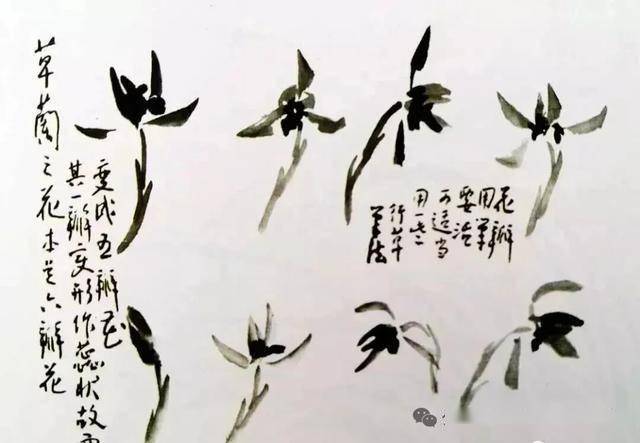 草蘭之花本是六瓣花
其一瓣变形作蕊状故
变成五瓣花
花瓣
用筆
要活
可适当
用一些
行草
筆法